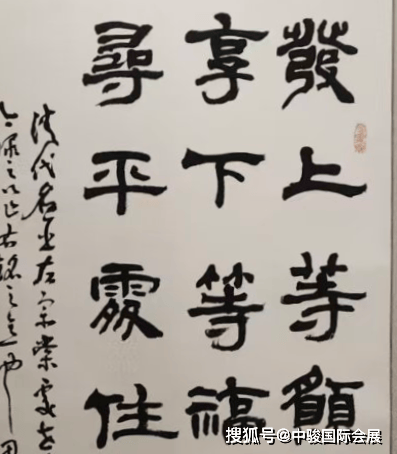 發上等願
享下等福
尋平處住
清代名臣左宗棠處世
右銘之
搜狐号@中骏国际会展